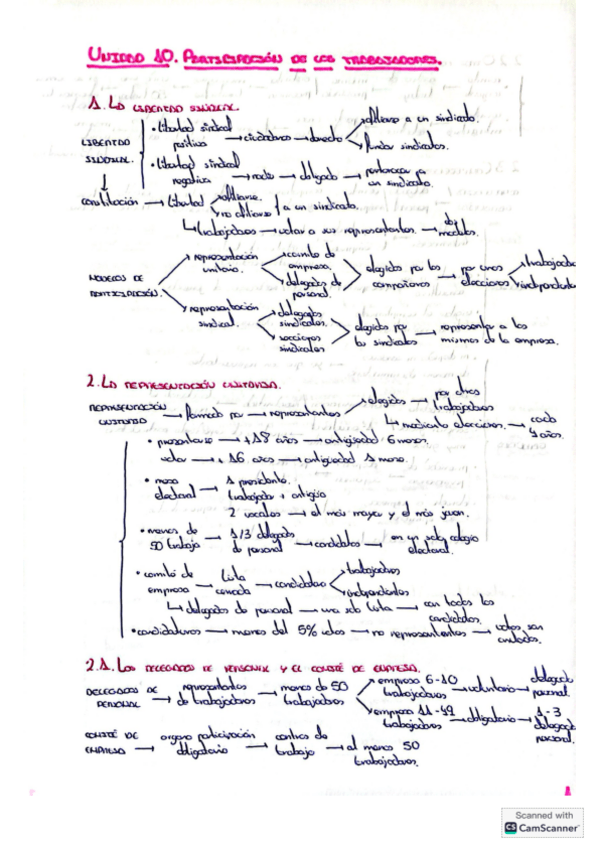 UNIDAD 10. PARTICIPACIÓN DE LOS TRABAJADORES.
1. LA LIBERTAD SINDICAL.
LIBERTAD SINDICAL
• libertad sindical positiva → ciudadanos → derecho → afiliarse a un sindicato.
fundar sindicatos.
• libertad sindical negativa → nadie → obligado → pertenecer a un sindicato.
constitución → libertad → afiliarse
no afiliarse } a un sindicato.
↳ trabajadores → votar a sus representantes. → dos modelos.
MODELOS DE PARTICIPACIÓN.
representación unitaria. → comité de empresa.
delegados de personal. → elegidos por los compañeros → por unas elecciones → trabajador
independiente
representación sindical. → delegados sindicales.
secciones sindicales → elegidos por los sindicatos → representar a los mismos de la empresa.
2. LA REPRESENTACIÓN UNITARIA.
REPRESENTACIÓN UNITARIA → formada por → representantes → elegidos → por otros trabajadores
↳ mediante elecciones → cada 4 años.
• presentarse → +18 años → antigüedad 6 meses.
votar → +16 años → antigüedad 1 mes.
• mesa electoral → 1 presidente. trabajador + antigüo
2 vocales → el más mayor y el más joven.
• menos de 50 trabaja → 1/3 delegados de personal → candidatos → en un solo colegio electoral.
• comité de empresa → lista cerrada → candidatos → trabajadores
independientes
↳ delegados de personal → una sola lista → con todos los candidatos.
• candidaturas → menos del 5% votos → no representantes → votos son anulados.
2.1. LOS DELEGADOS DE PERSONAL Y EL COMITÉ DE EMPRESA.
DELEGADOS DE PERSONAL → representantes de trabajadores → menos de 50 → empresa 6-10 trabajadores → voluntario → delegado personal.
empresa 11-49 trabajadores → obligatorio → 1-3 delegados personal.
COMITÉ DE EMPRESA → organo participación obligatorio → centros de trabajo → al menos 50 trabajadores.
1
Scanned with
CS CamScanner